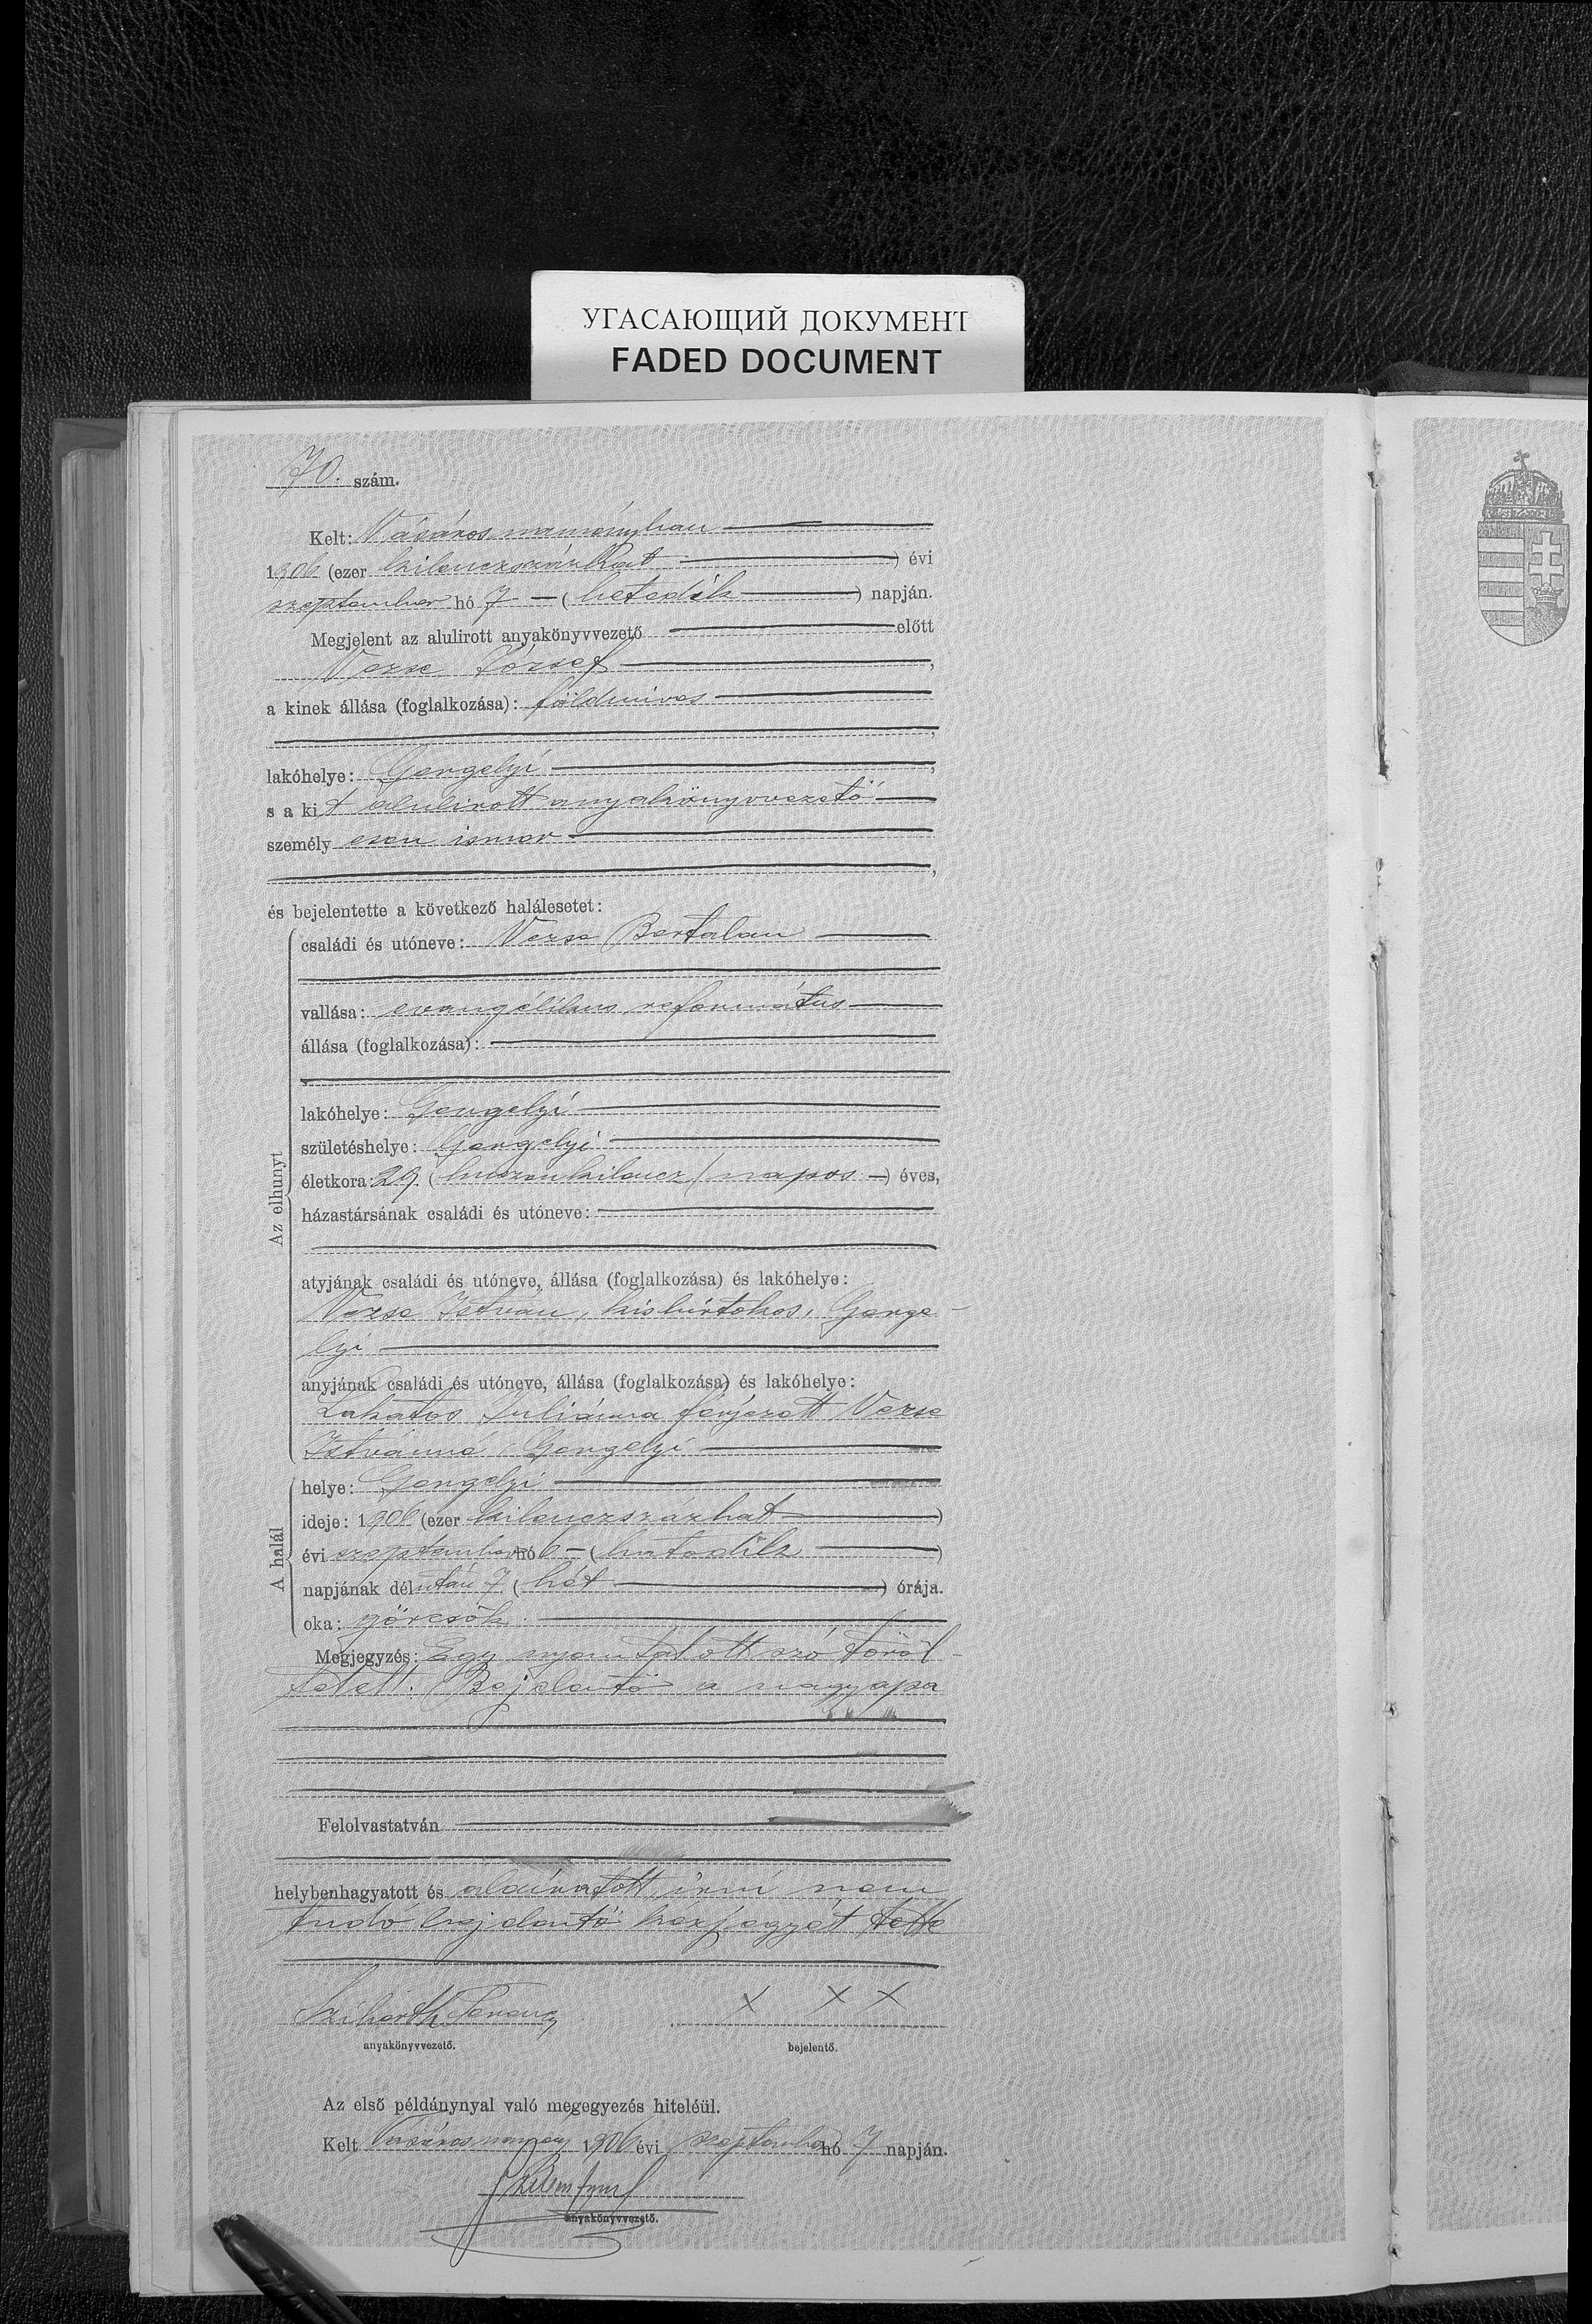 УГАСАЮЩИЙ ДОКУМЕНТ
FADED DOCUMENT
70. szám.
Kelt: Vásárosnaményban
1906 (ezer kilenczszázhat) évi
szeptember hó 7 (hetedik) napján.
Megjelent az alulirott anyakönyvvezető előtt
Vezse József,
a kinek állása (foglalkozása): földmives
lakóhelye: Gergelyi,
s a kit alulirott anyakönyvvezető
személyesen ismer
és bejelentette a következő halálesetet:
Az elhunyt
családi és utóneve: Vezse Bertalan
vallása: evangélikus református
állása (foglalkozása):
lakóhelye: Gergelyi
születéshelye: Gergelyi
életkora: 29 (huszonkilencz) napos éves,
házastársának családi és utóneve:
atyjának családi és utóneve, állása (foglalkozása) és lakóhelye:
Vezse István, kisbirtokos, Gerge-
lyi
anyjának családi és utóneve, állása (foglalkozása) és lakóhelye:
Lakatos Juliánna férjezett Vezse
Istvánné, Gergelyi
A halál
helye: Gergelyi
ideje: 1906 (ezer kilenczszázhat)
évi szeptember hó 6 (hatodik)
napjának délután 7 (hét) órája.
oka: görcsök.
Megjegyzés: Egy nyomtatott szó töröl-
tetett. Bejelentő a nagyapa
Felolvastatván
helybenhagyatott és aláiratott, irni nem
tudó bejelentő kézjegyét tette
Ferencz x x x
anyakönyvvezető. bejelentő.
Az első példánynyal való megegyezés hiteléül.
Kelt Vásárosnamény 1906 évi szeptember hó 7 napján.
anyakönyvvezető.